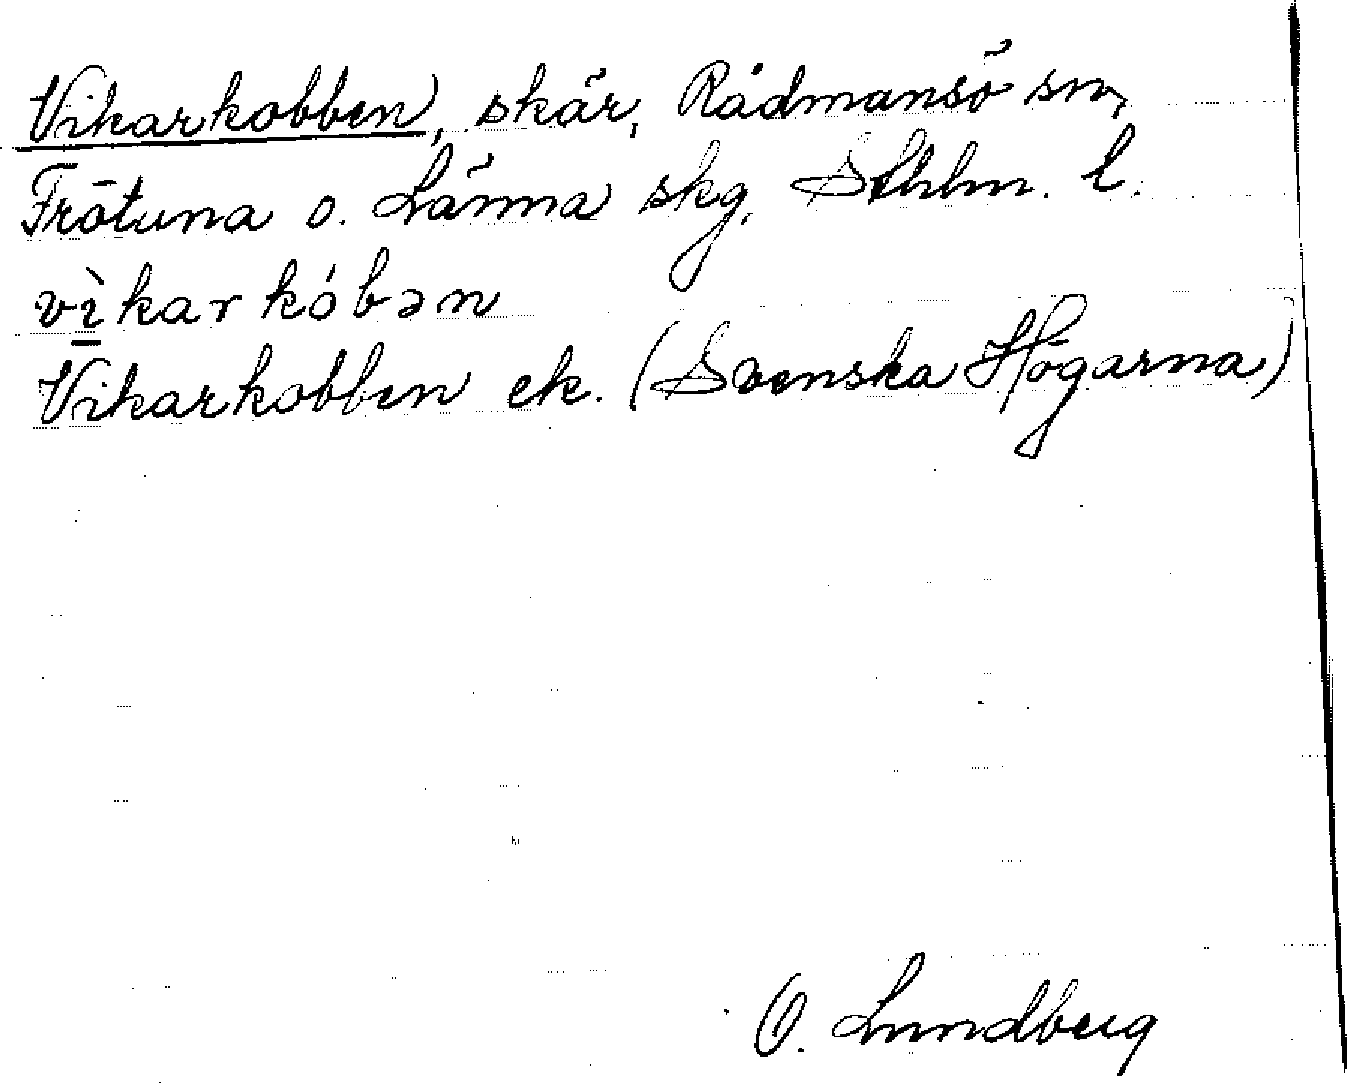 Vikarkobben, skär, Rådmansö sn,
Frötuna o. Länna skg, Sthlm. l.
vì̱karkóbən
Vikarkobben ek. (Svenska Högarna)
O. Lundberg